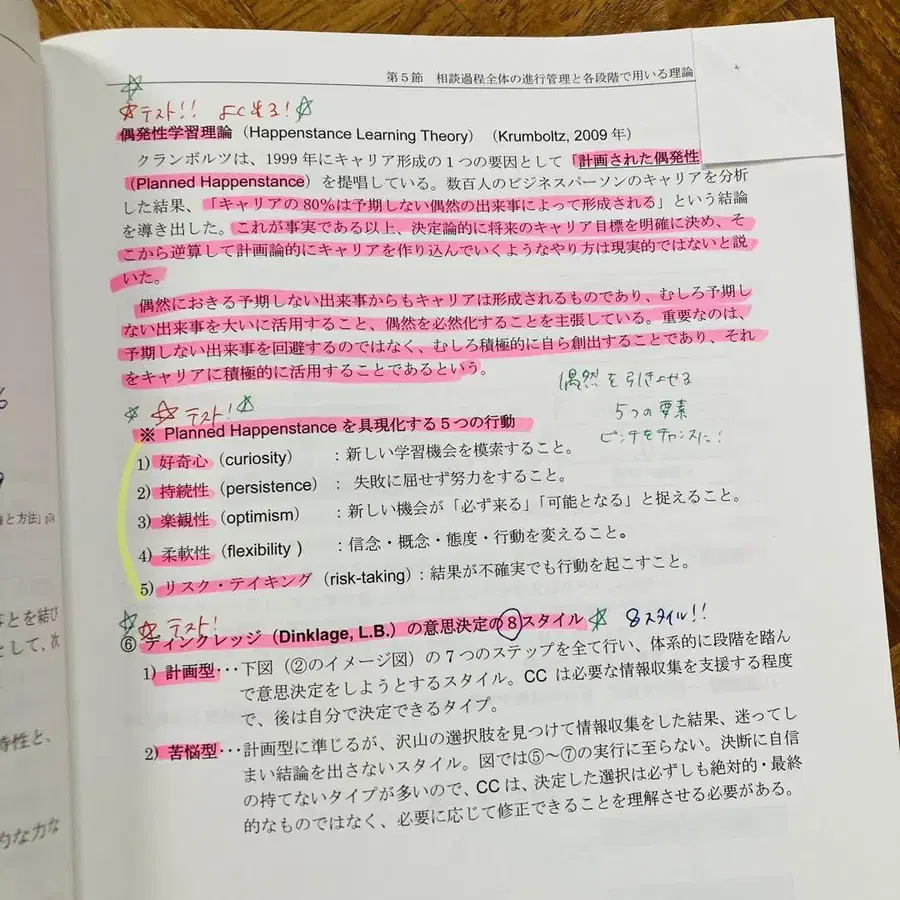 第5節 相談過程全体の進行管理と各段階で用いる理論
☆テスト!! よく出る!☆
偶発性学習理論（Happenstance Learning Theory）（Krumboltz, 2009 年）
クランボルツは、1999 年にキャリア形成の１つの要因として「計画された偶発性
（Planned Happenstance）を提唱している。数百人のビジネスパーソンのキャリアを分析
した結果、「キャリアの 80%は予期しない偶然の出来事によって形成される」という結論
を導き出した。これが事実である以上、決定論的に将来のキャリア目標を明確に決め、そ
こから逆算して計画論的にキャリアを作り込んでいくようなやり方は現実的ではないと説
いた。
偶然におきる予期しない出来事からもキャリアは形成されるものであり、むしろ予期し
ない出来事を大いに活用すること、偶然を必然化することを主張している。重要なのは、
予期しない出来事を回避するのではなく、むしろ積極的に自ら創出することであり、それ
をキャリアに積極的に活用することであるという。
偶然を引きよせる
5つの要素
ピンチをチャンスに!
☆☆テスト!☆
※ Planned Happenstance を具現化する５つの行動
1) 好奇心（curiosity） ：新しい学習機会を模索すること。
2) 持続性（persistence） ：失敗に屈せず努力をすること。
3) 楽観性（optimism） ：新しい機会が「必ず来る」「可能となる」と捉えること。
4) 柔軟性（flexibility ) ：信念・概念・態度・行動を変えること。
5) リスク・テイキング（risk-taking）：結果が不確実でも行動を起こすこと。
☆☆テスト!
⑥ ディンクレッジ（Dinklage, L.B.）の意思決定の８スタイル ☆ 8スタイル!!
1) 計画型･･･下図（②のイメージ図）の７つのステップを全て行い、体系的に段階を踏ん
で意思決定をしようとするスタイル。CC は必要な情報収集を支援する程度
で、後は自分で決定できるタイプ。
2) 苦悩型･･･計画型に準じるが、沢山の選択肢を見つけて情報収集をした結果、迷ってし
まい結論を出さないスタイル。図では⑤～⑦の実行に至らない。決断に自信
の持てないタイプが多いので、CC は、決定した選択は必ずしも絶対的・最終
的なものではなく、必要に応じて修正できることを理解させる必要がある。